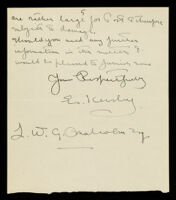 are rather large for P. & therefore
subject to damage.
Should you want any further
information in this matter I
would be pleased to furnish same
Yours Respectfully
L. W. G. Malcolm Esq.